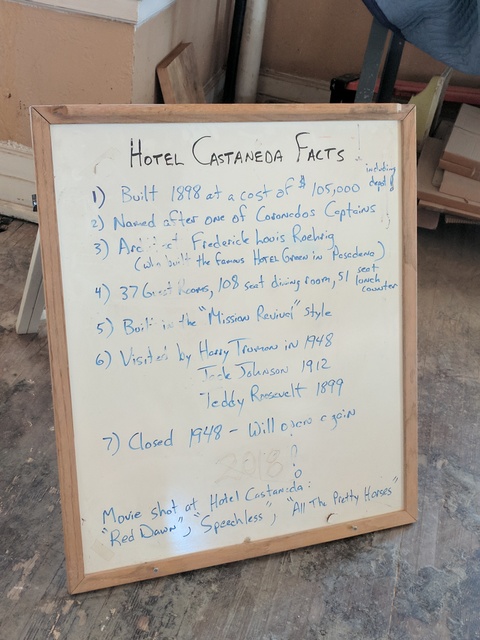 HOTEL CASTANEDA FACTS
1) Built 1898 at a cost of $105,000 including depot!
2) Named after one of Coronados Captains
3) Architect Frederick Louis Roehrig
(who built the famous HOTEL Green in Pasadena)
4) 37 Guest Rooms, 108 seat dining room, 51 seat lunch counter
5) Built in the "Mission Revival" style
6) Visited by Harry Truman in 1948
Jack Johnson 1912
Teddy Roosevelt 1899
7) Closed 1948 - Will open again
2018?
Movie shot at Hotel Castaneda:
"Red Dawn", "Speechless", "All The Pretty Horses"